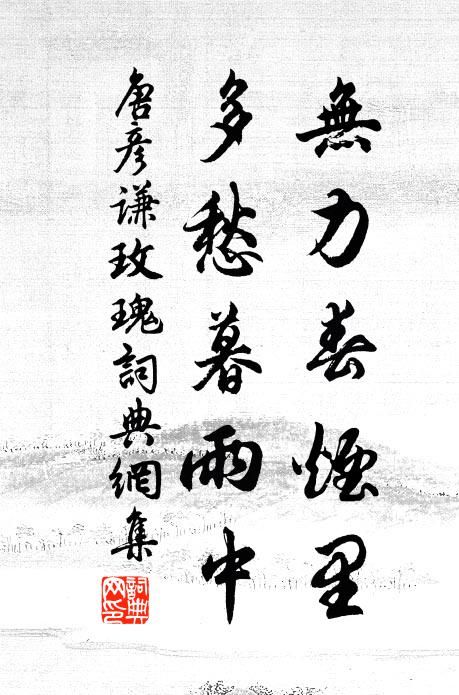 無力春煙里
多愁暮雨中
唐彦謙玫瑰詞典網集
詞典网印